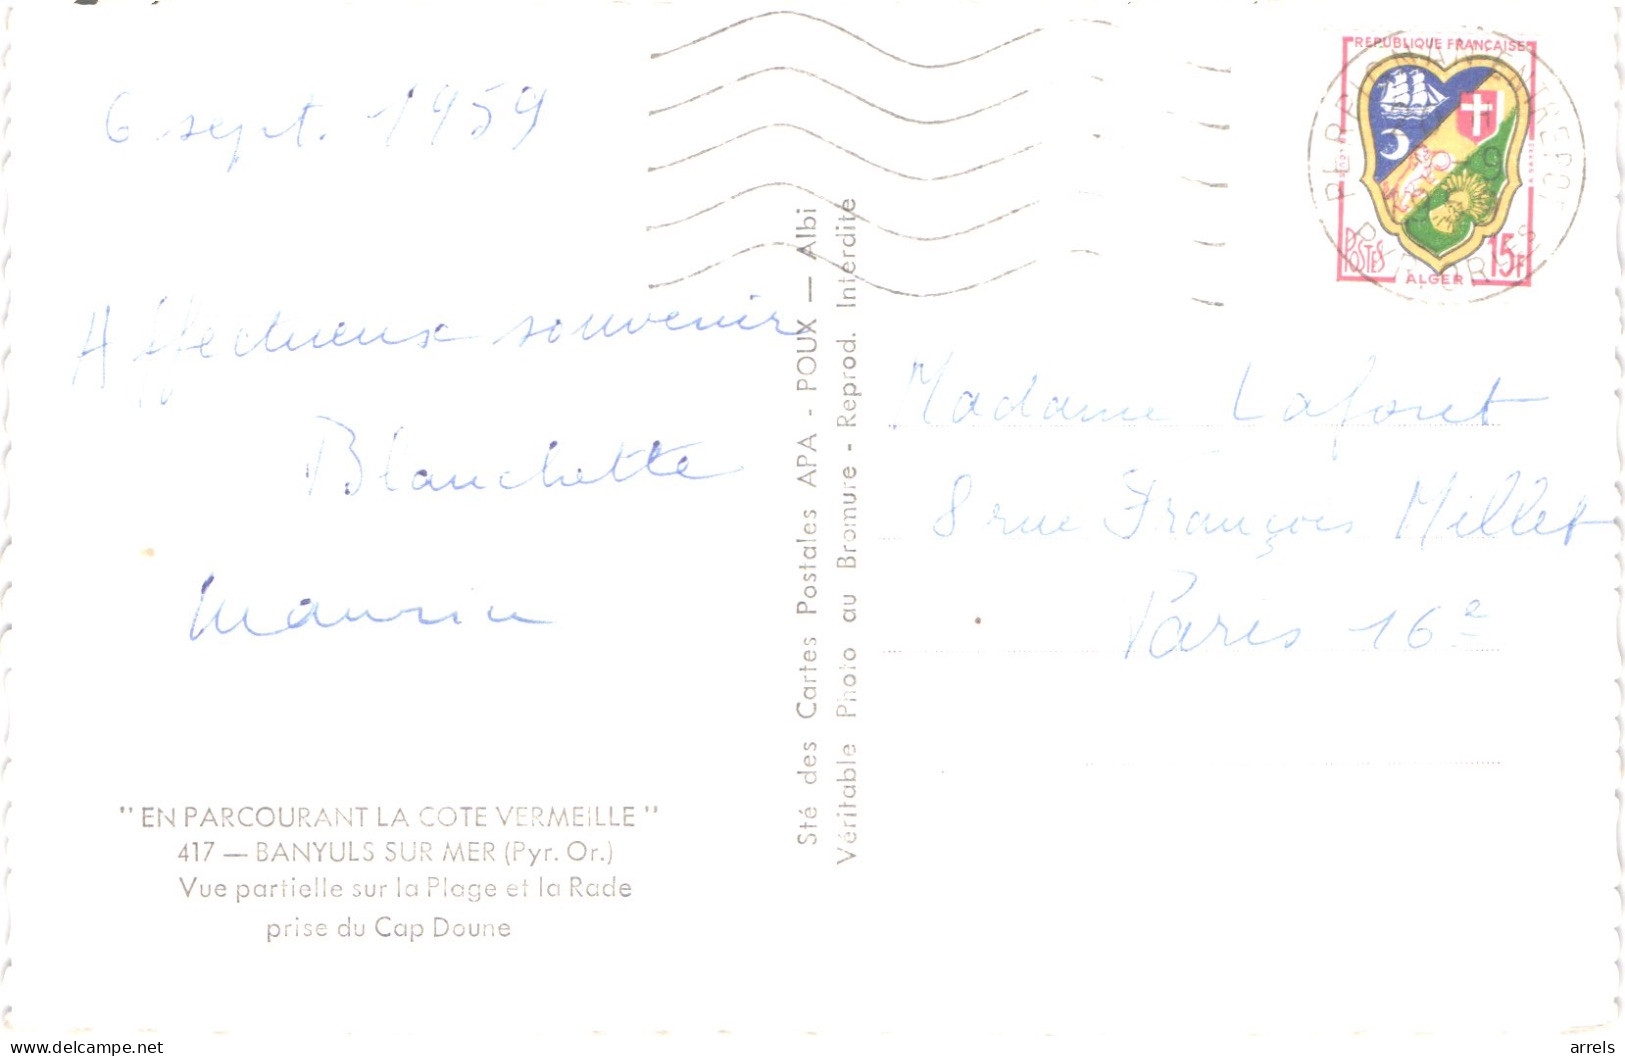 6 sept. 1959
Affectueux souvenir
Blanchette
"EN PARCOURANT LA COTE VERMEILLE"
417 — BANYULS SUR MER (Pyr. Or.)
Vue partielle sur la Plage et la Rade
prise du Cap Doune
Sté des Cartes Postales APA - POUX — Albi
Véritable Photo au Bromure - Reprod. Interdite
REPUBLIQUE FRANÇAISE
POSTES
15F
ALGER
Madame Laforet
8 rue François Millet
Paris 16e
delcampe.net
arrels